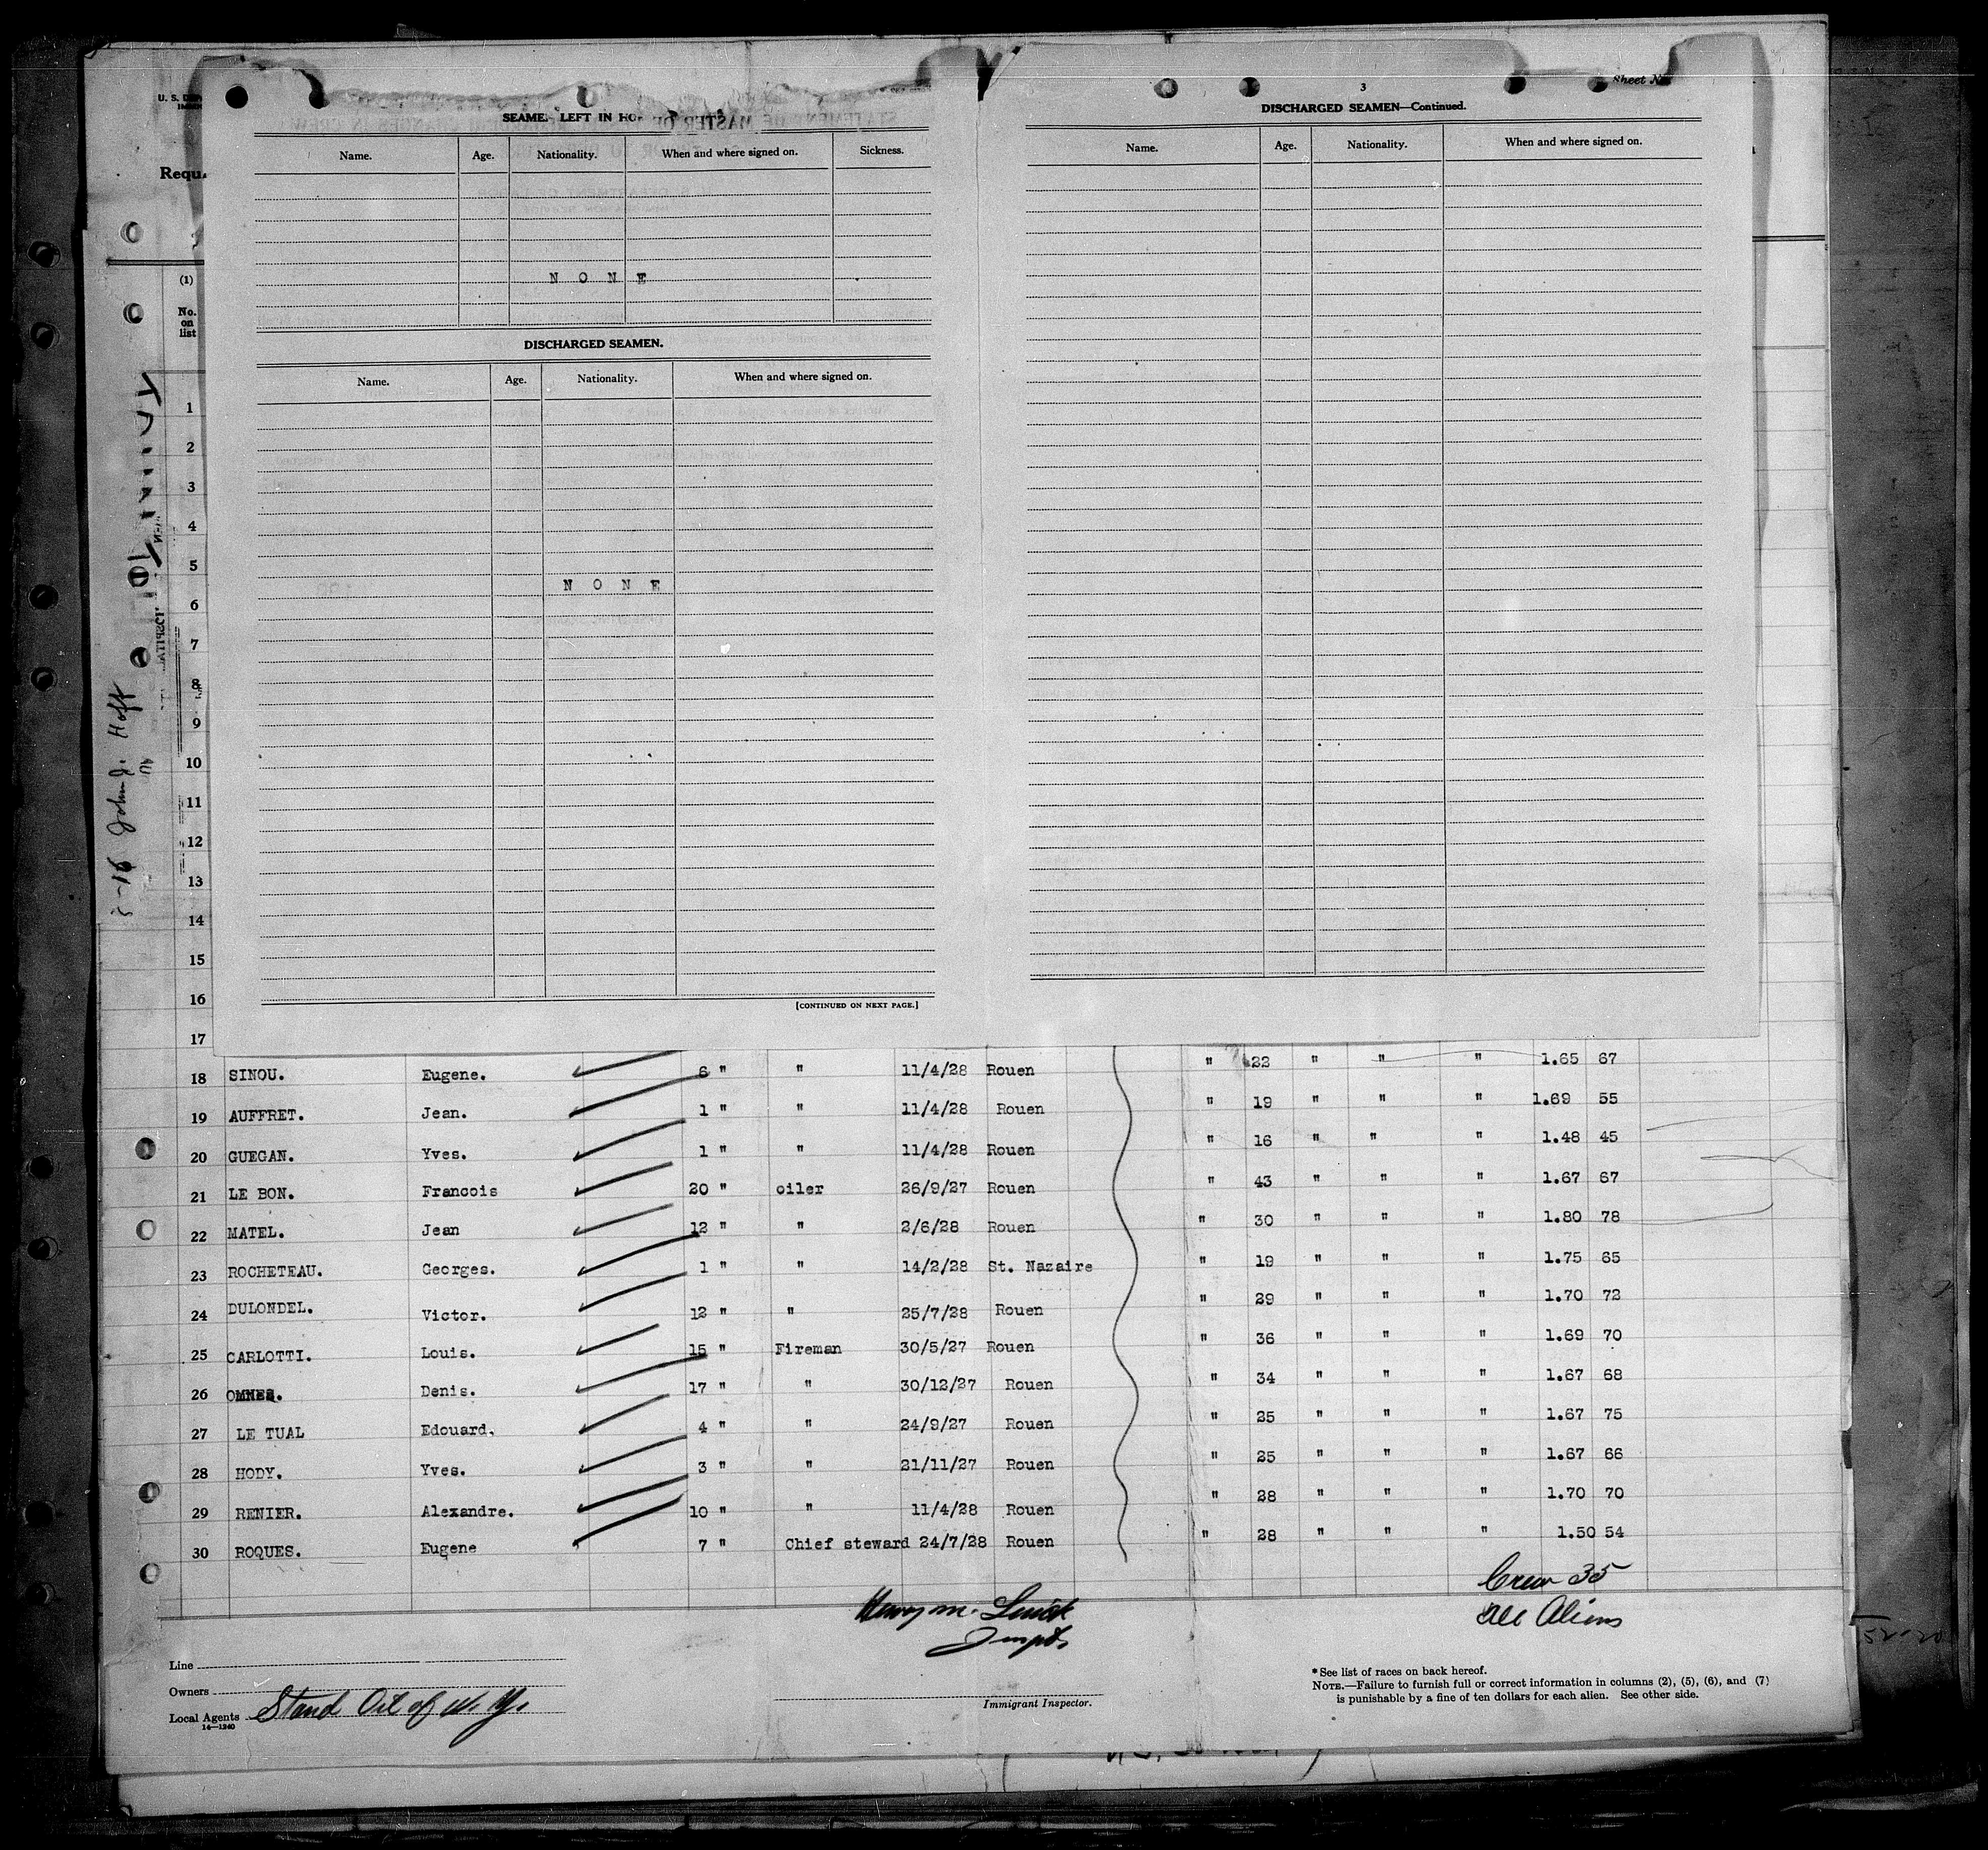 3
Sheet
DISCHARGED SEAMEN—Continued.
Name. Age. Nationality. When and where signed on.
U. S.
SEAME LEFT IN HO
Name. Age. Nationality. When and where signed on. Sickness.
N O N E
DISCHARGED SEAMEN.
Name. Age. Nationality. When and where signed on.
N O N E
[CONTINUED ON NEXT PAGE.]
Requ
(1)
No.
on
list
1
2
3
4
5
6
7
8
9
10
11
12
13
14
15
16
17
John J. Hoff
18 SINOU. Eugene. 6 " " 11/4/28 Rouen " 22 " " " 1.65 67
19 AUFFRET. Jean. 1 " " 11/4/28 Rouen " 19 " " " 1.69 55
20 GUEGAN. Yves. 1 " " 11/4/28 Rouen " 16 " " " 1.48 45
21 LE BON. Francois 20 " oiler 26/9/27 Rouen " 43 " " " 1.67 67
22 MATEL. Jean 12 " " 2/6/28 Rouen " 30 " " " 1.80 78
23 ROCHETEAU. Georges. 1 " " 14/2/28 St. Nazaire " 19 " " " 1.75 65
24 DULONDEL. Victor. 12 " " 25/7/28 Rouen " 29 " " " 1.70 72
25 CARLOTTI. Louis. 15 " Fireman 30/5/27 Rouen " 36 " " " 1.69 70
26 OMNES. Denis. 17 " " 30/12/27 Rouen " 34 " " " 1.67 68
27 LE TUAL Edouard. 4 " " 24/9/27 Rouen " 25 " " " 1.67 75
28 HODY. Yves. 3 " " 21/11/27 Rouen " 25 " " " 1.67 66
29 RENIER. Alexandre. 10 " " 11/4/28 Rouen " 28 " " " 1.70 70
30 ROQUES. Eugene 7 " Chief steward 24/7/28 Rouen " 28 " " " 1.50 54
Crew 35
All Aliens
Henry M.
Line
Owners
Local Agents Stand Oil of N. Y.
14—1240
Immigrant Inspector.
*See list of races on back hereof.
NOTE.—Failure to furnish full or correct information in columns (2), (5), (6), and (7)
is punishable by a fine of ten dollars for each alien. See other side.